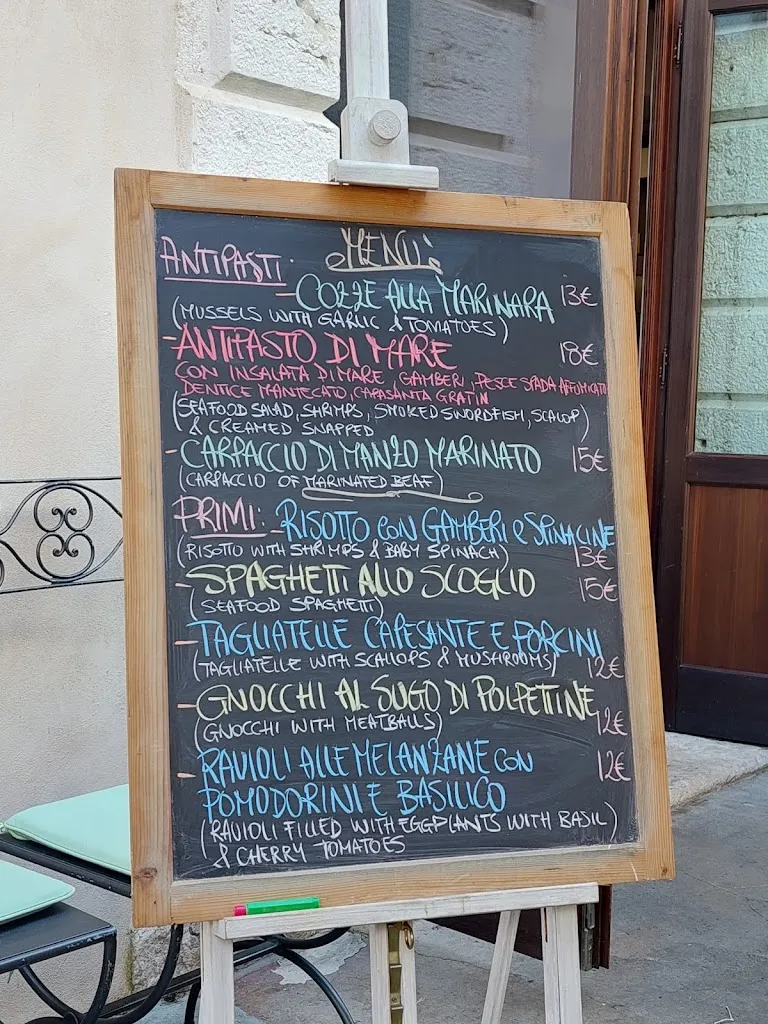 MENU'
ANTIPASTI:
-COZZE ALLA MARINARA 13€
(MUSSELS WITH GARLIC & TOMATOES)
-ANTIPASTO DI MARE 18€
CON INSALATA DI MARE, GAMBERI, PESCE SPADA AFFUMICATO
DENTICE MANTECATO, CAPASANTA GRATIN
(SEAFOOD SALAD, SHRIMPS, SMOKED SWORDFISH, SCALOP)
& CREAMED SNAPPED
-CARPACCIO DI MANZO MARINATO 15€
(CARPACCIO OF MARINATED BEAF)
PRIMI: -RISOTTO CON GAMBERI e SPINACINE
(RISOTTO WITH SHRIMPS & BABY SPINACH) 13€
-SPAGHETTI ALLO SCOGLIO 15€
(SEAFOOD SPAGHETTI)
-TAGLIATELLE CAPESANTE E PORCINI
(TAGLIATELLE WITH SCALLOPS & MUSHROOMS) 12€
-GNOCCHI AL SUGO DI POLPETINE
(GNOCCHI WITH MEATBALLS) 12€
-RAVIOLI ALLE MELANZANE CON 12€
POMODORINI E BASILICO
(RAVIOLI FILLED WITH EGGPLANTS WITH BASIL)
& CHERRY TOMATOES